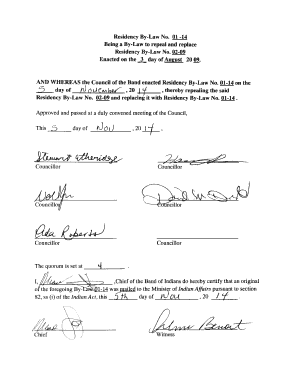 Residency By-Law No. 01-14
Being a By-Law to repeal and replace
Residency By-Law No. 02-09
Enacted on the 3 day of August 20 09.
AND WHEREAS the Council of the Band enacted Residency By-Law No. 01-14 on the
5 day of November, 20 14, thereby repealing the said
Residency By-Law No. 02-09 and replacing it with Residency By-Law No. 01-14.
Approved and passed at a duly convened meeting of the Council,
This 5 day of Nov, 20 14.
Stewart Etheridge
Councillor Councillor
David
Councillor Councillor
Ada Roberts
Councillor Councillor
The quorum is set at 4.
I, , Chief of the Band of Indians do hereby certify that an original
of the foregoing By-Law 01-14 was mailed to the Minister of Indian Affairs pursuant to section
82, ss (i) of the Indian Act, this 5th day of Nov, 20 14
Benoit
Chief Witness